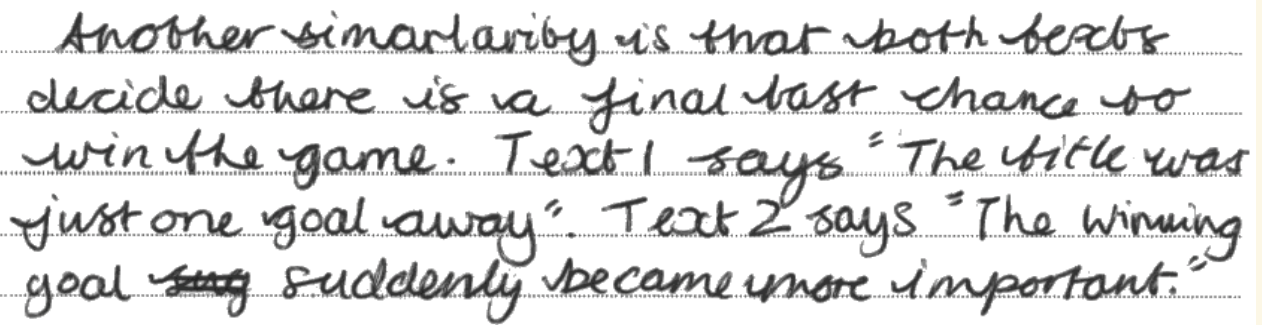 Another simarlarity is that both texts
decide there is a final last chance to
win the game. Text 1 says "The title was
just one goal away". Text 2 says "The winning
goal suddenly became more important."